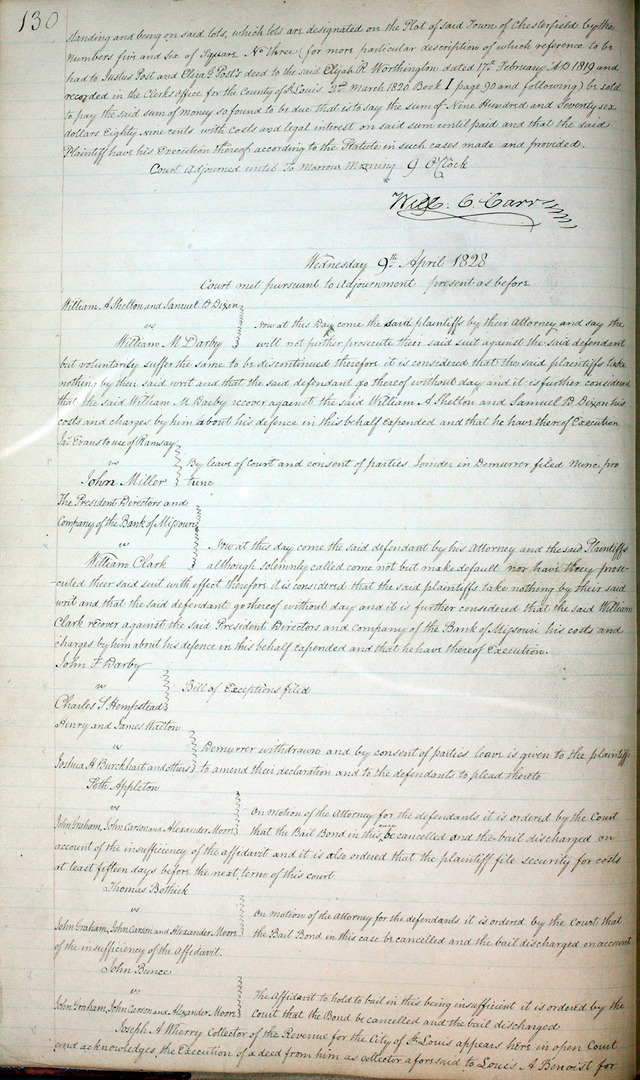 130
standing and being on said lots, which lots are designated on the Plot of said Town of Chesterfield by the
numbers five and six of Square No three (for more particular description of which reference to be
had to Justus Post and Eliza G Post's deed to the said Elijah R Worthington dated 17th February A.D 1819 and
recorded in the Clerks office for the County of St Louis 2nd March 1820 Book I page 90 and following) be sold
to pay the said sum of money so found to be due that is to say the sum of Nine Hundred and Seventy six
dollars Eighty nine cents with costs and legal interest on said sum until paid and that the said
Plaintiff have his Execution thereof according to the Statute in such cases made and provided.
Court adjourned until To morrow Morning 9 O'Clock
Will. C. Carr
Wednesday 9th April 1828
Court met pursuant to adjournment present as before
William A Shelton and Samuel D Dixon
vs
William M Darby
Now at this day come the said plaintiffs by their attorney and say the
will not further prosecute their said suit against the said defendant
but voluntarily suffer the same to be discontinued therefore it is considered that the said plaintiffs take
nothing by their said writ and that the said defendant go thereof without day and it is further considered
that the said William M Darby recover against the said William A Shelton and Samuel D Dixon his
costs and charges by him about his defence in this behalf expended and that he have thereof Execution
Jas Evans to use of Ramsay
vs
John Miller
By leave of Court and consent of parties Joinder in Demurrer filed Nunc pro
tunc
The President Directors and
Company of the Bank of Missouri
vs
William Clark
Now at this day come the said defendant by his Attorney and the said Plaintiffs
although solemnly called come not but make default nor have they prose-
-cuted their said suit with effect therefore it is considered that the said plaintiffs take nothing by their said
writ and that the said defendant go thereof without day and it is further considered that the said William
Clark recover against the said President Directors and company of the Bank of Missouri his costs and
charges by him about his defence in this behalf expended and that he have thereof Execution.
John F Darby
vs
Charles S Hempstead
Bill of Exceptions filed
Henry and James Walton
vs
Joshua H Burckhart and others
Demurrer withdrawn and by consent of parties leave is given to the plaintiffs
to amend their declaration and to the defendants to plead thereto
Seth Appleton
vs
John Graham, John Carson and Alexander Moore
On motion of the Attorney for the defendants it is ordered by the Court
that the Bail Bond in this case be cancelled and the bail discharged on
account of the insufficiency of the affidavit and it is also ordered that the plaintiff file security for costs
at least fifteen days before the next term of this court
Thomas Bothick
vs
John Graham, John Carson and Alexander Moore
On motion of the attorney for the defendants it is ordered by the Court that
the Bail Bond in this case be cancelled and the bail discharged on account
of the insufficiency of the Affidavit.
John Bunce
vs
John Graham, John Carson and Alexander Moore
The Affidavit to hold to bail in this being insufficient it is ordered by the
Court that the Bond be cancelled and the bail discharged
Joseph A Wherry Collector of the Revenue for the City of St Louis appears here in open Court
and acknowledges the Execution of a deed from him as collector aforesaid to Louis A Benoist for